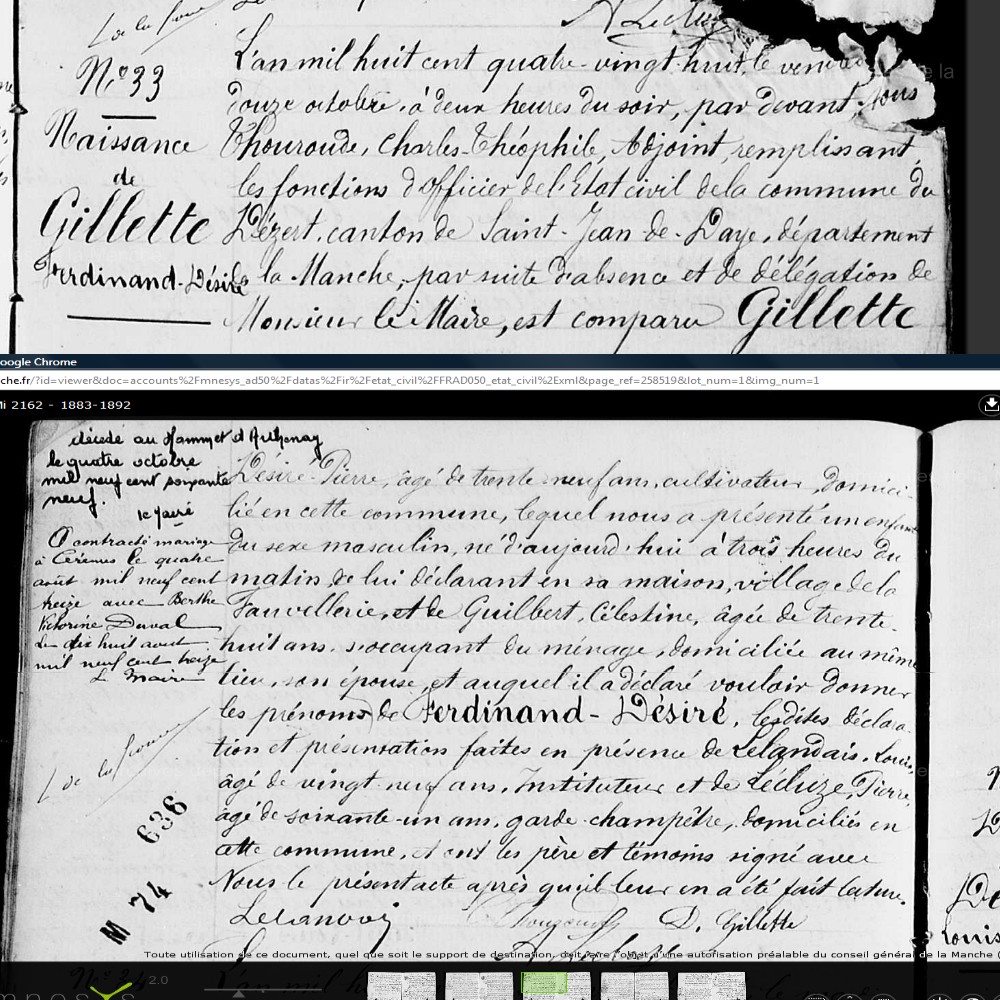 L'an mil huit cent quatre-vingt-huit, le
N°33
douze octobre, à deux heures du soir, par devant Nous
Naissance
Thouroude, Charles-Théophile, Adjoint, remplissant
de
les fonctions d'Officier de l'État civil de la commune du
Gillette
Dézert, canton de Saint-Jean-de-Daye, département
Ferdinand-Désiré
la Manche, par suite d'absence et de délégation de
Monsieur le Maire, est comparu Gillette
oogle Chrome
che.fr/?id=viewer&doc=accounts%2Fmnesys_ad50%2Fdatas%2Fir%2Fetat_civil%2FFRAD050_etat_civil%2Exml&page_ref=258519&lot_num=1&img_num=1
Mi 2162 - 1883-1892
décédé au
le quatre octobre
mil neuf cent soixante
neuf.
A contracté mariage
à Cérences le quatre
août mil neuf cent
treize avec Berthe
Victorine Duval
Le dix huit août
mil neuf cent treize
Le Maire
Désiré-Pierre, âgé de trente-neuf ans, cultivateur, domici-
lié en cette commune, lequel nous a présenté un enfant
du sexe masculin, né d'aujourd'hui à trois heures du
matin de lui déclarant en sa maison, village de la
Fauvellerie, et de Guilbert, Célestine, âgée de trente-
huit ans, s'occupant du ménage, domiciliée au même
lieu, son épouse, et auquel il a déclaré vouloir donner
les prénoms de Ferdinand-Désiré, lesdites déclara-
tion et présentation faites en présence de Lelandais, Louis,
âgé de vingt-neuf ans, Instituteur et de Lécluze, Pierre,
âgé de soixante-un ans, garde-champêtre, domiciliés en
cette commune, et ont les père et témoins signé avec
Nous le présent acte après qu'il leur en a été fait lecture.
D. Gillette
636
M 74
Toute utilisation de ce document, quel que soit le support de destination, doit faire l'objet d'une autorisation préalable du conseil général de la Manche (
2.0